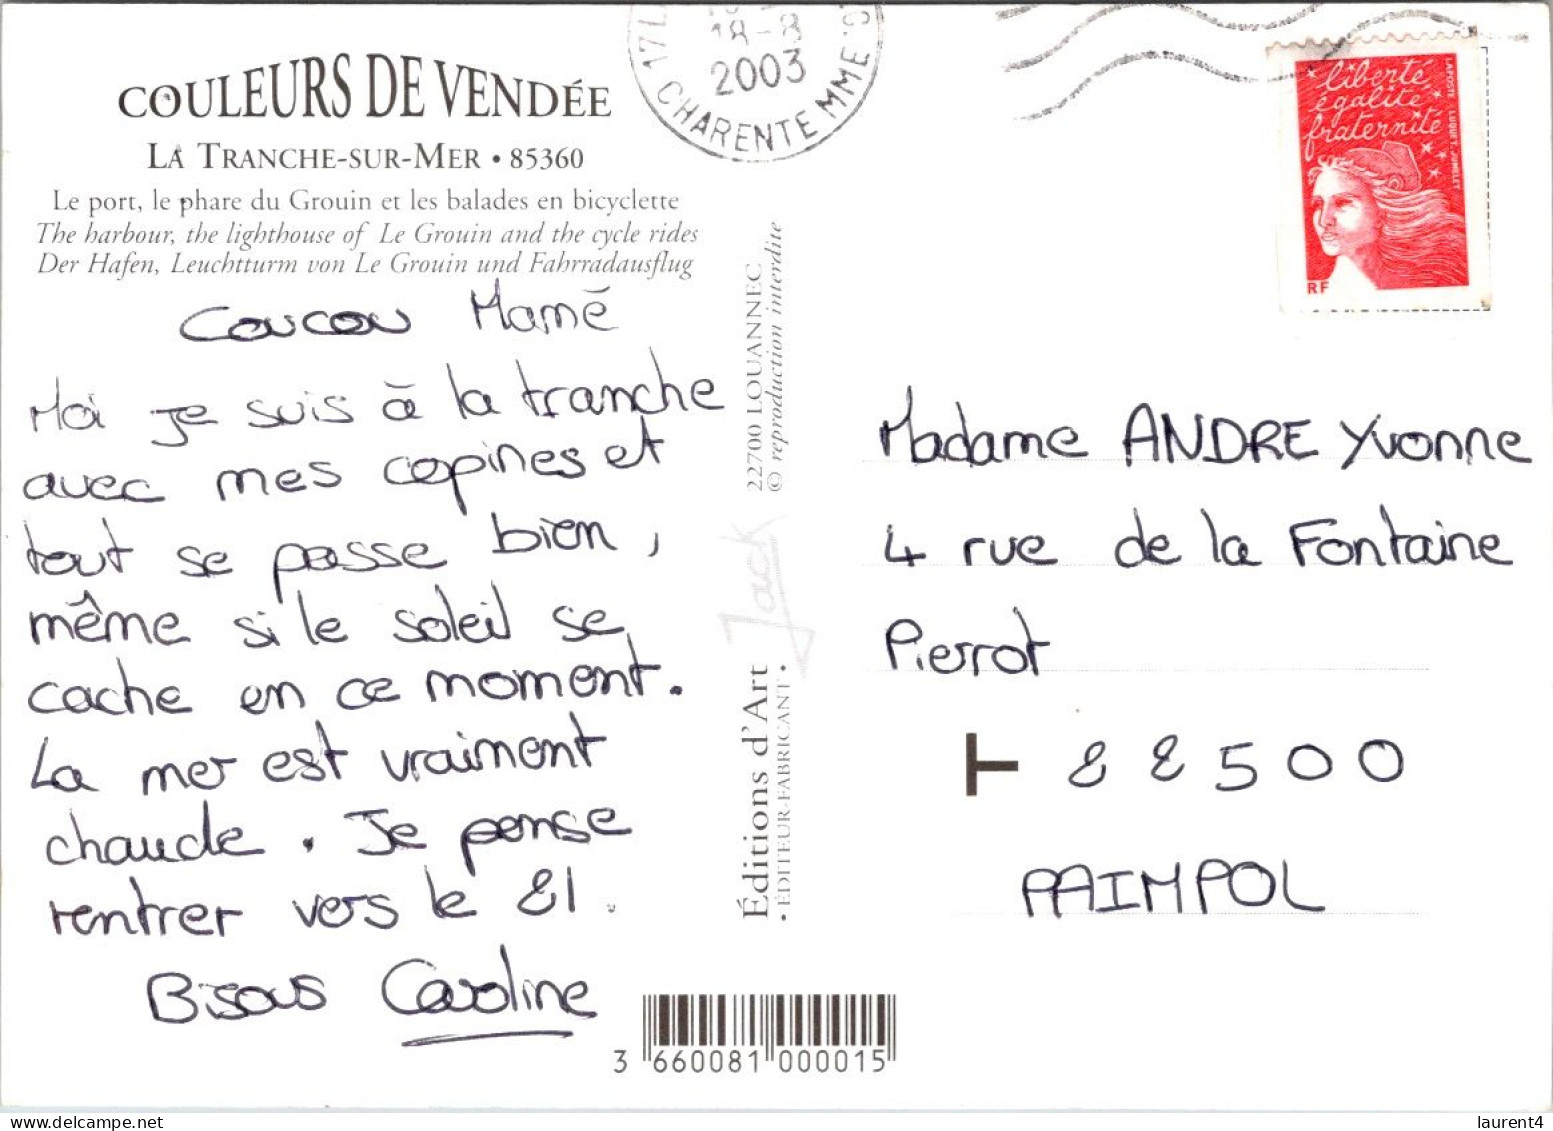 COULEURS DE VENDÉE
LA TRANCHE-SUR-MER • 85360
Le port, le phare du Grouin et les balades en bicyclette
The harbour, the lighthouse of Le Grouin and the cycle rides
Der Hafen, Leuchtturm von Le Grouin und Fahrradausflug
Coucou Mamé
Moi je suis à la tranche
avec mes copines et
tout se passe bien,
même si le soleil se
cache en ce moment.
La mer est vraiment
chaude. Je pense
rentrer vers le 21.
Bisous Caroline
22700 LOUANNEC
© reproduction interdite
Jack
Éditions d'Art
• ÉDITEUR-FABRICANT •
3 660081 000015
18-8
2003
17L
CHARENTE MME
liberté
égalité
fraternité
LAPOSTE LUQUET. JUMELET
RF
Madame ANDRE Yvonne
4 rue de la Fontaine
Pierrot
T 22500
PAIMPOL
laurent4